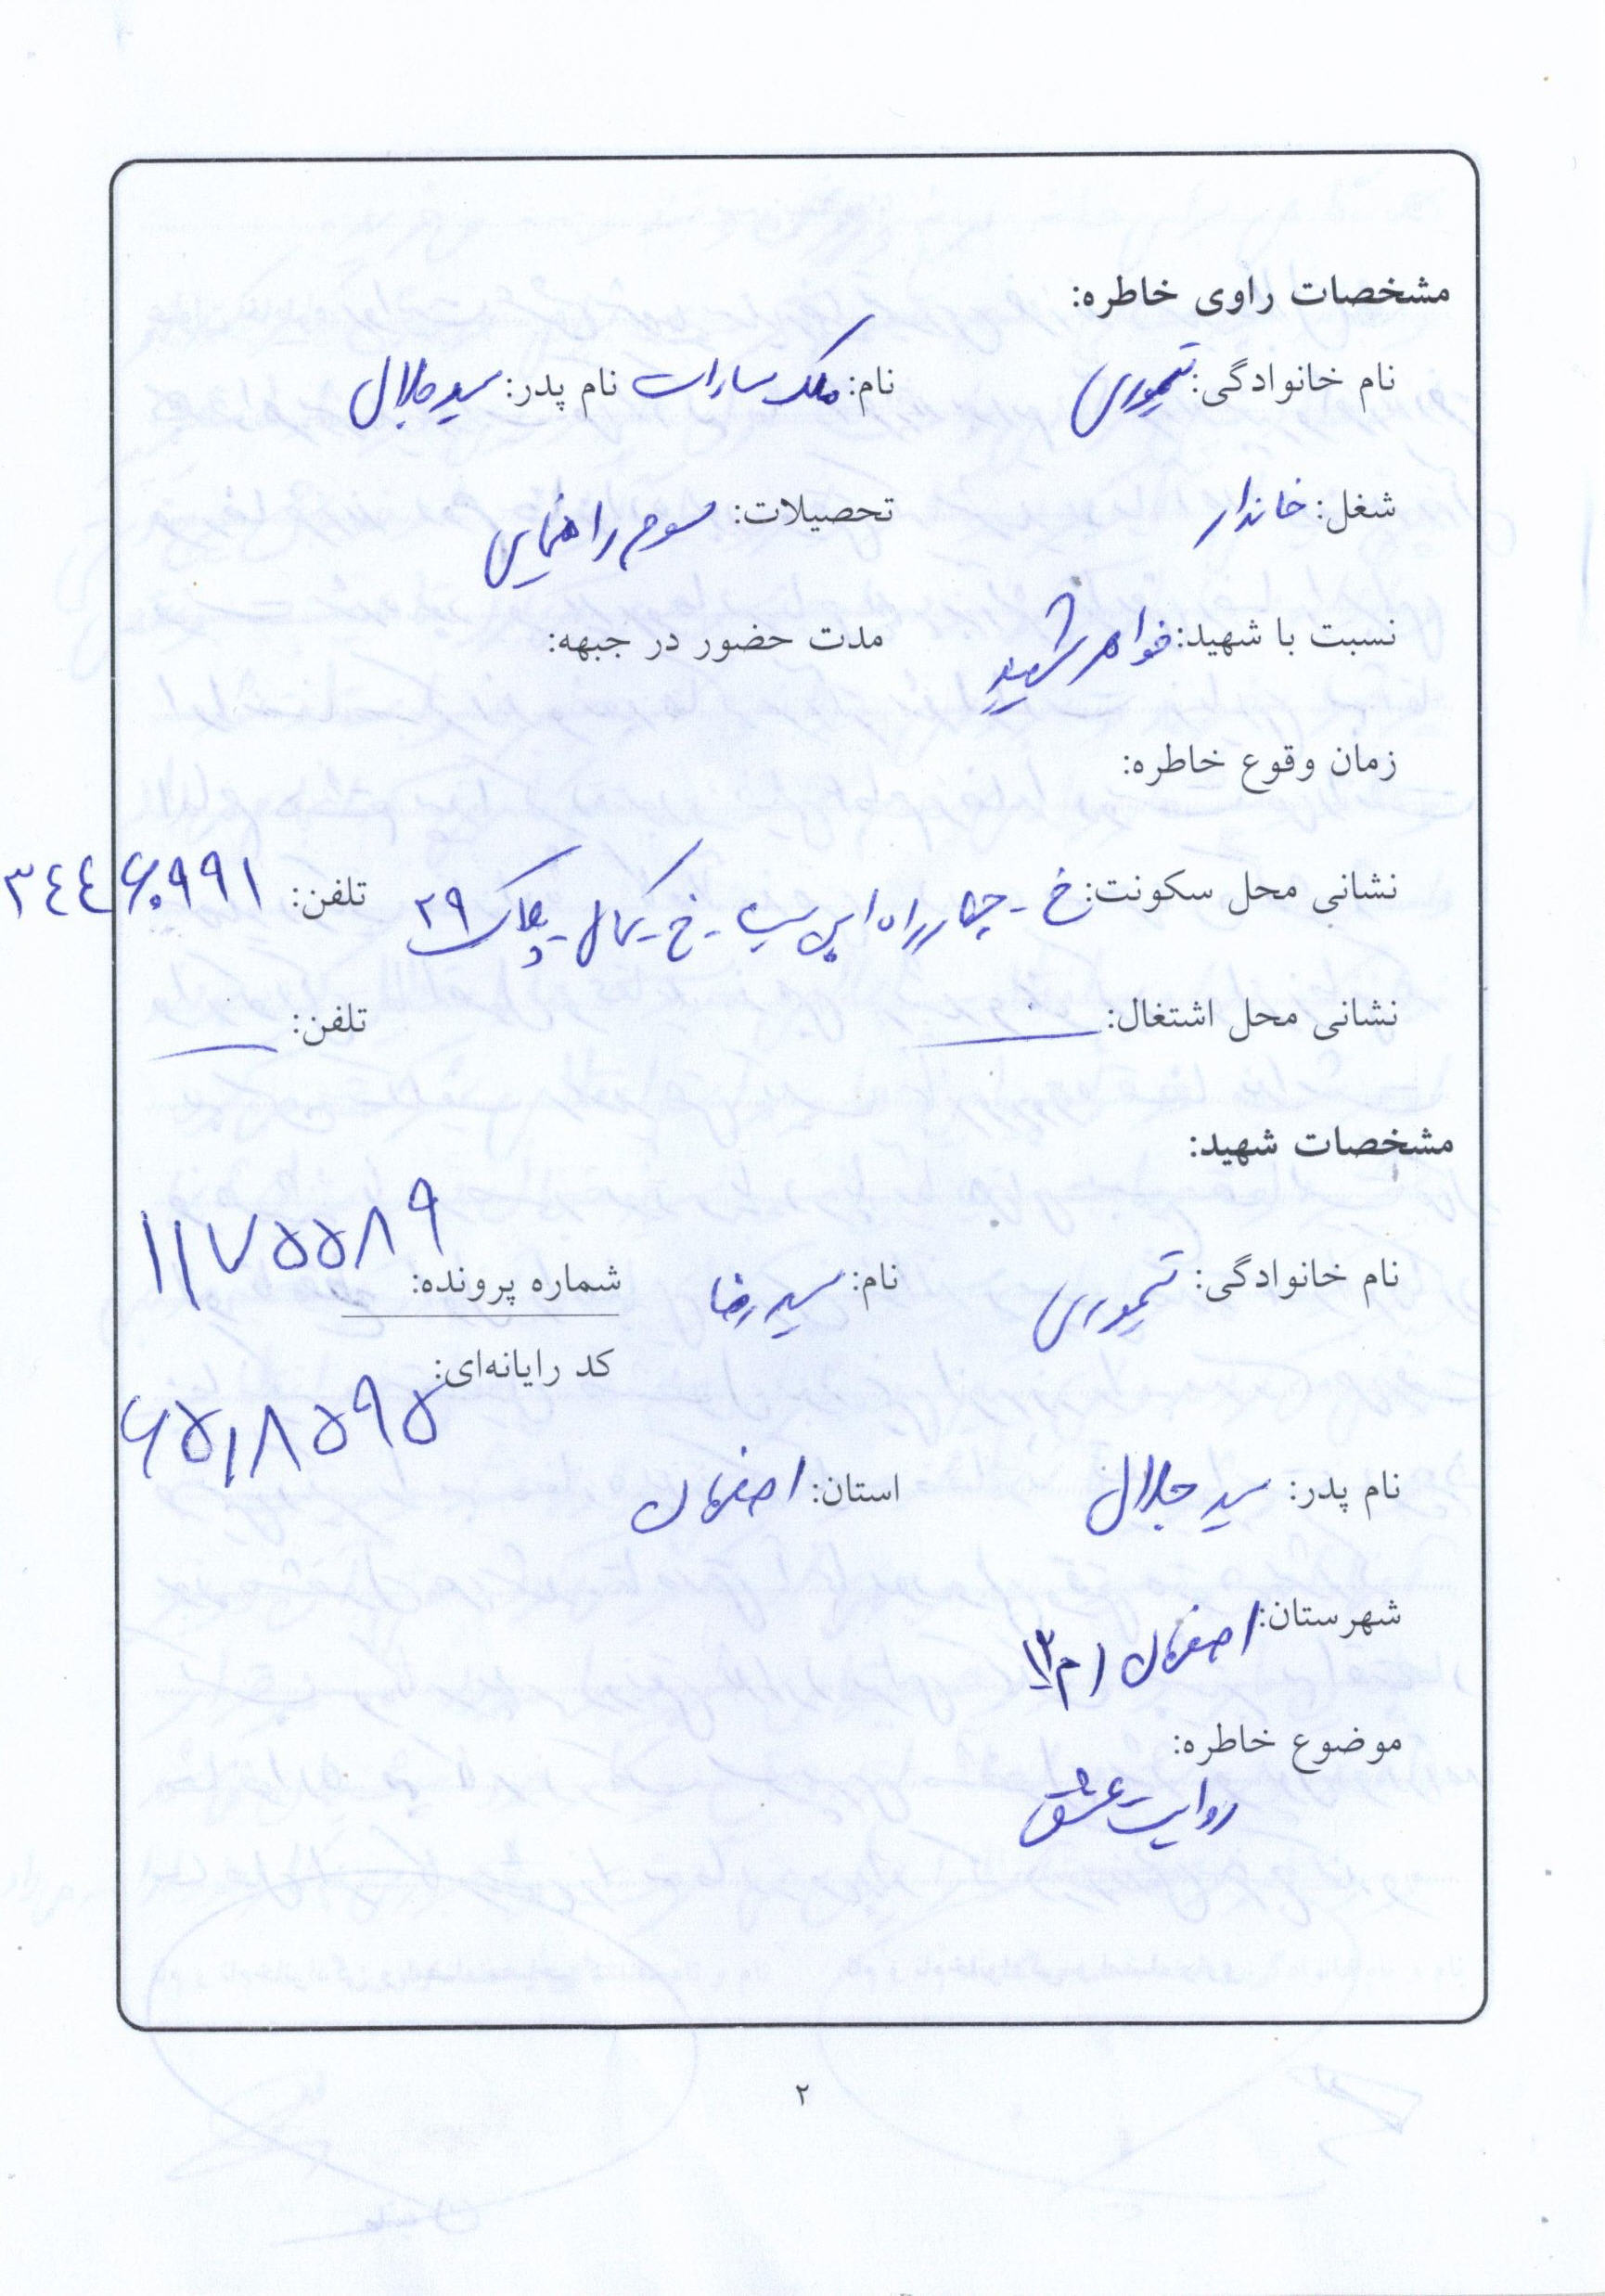 مشخصات راوی خاطره:
نام خانوادگی: تیموری نام: ملک سادات نام پدر: سید جلال
شغل: خانه‌دار تحصیلات: سوم راهنمایی
نسبت با شهید: خواهر شهید مدت حضور در جبهه:
زمان وقوع خاطره:
نشانی محل سکونت: خ - چهار راه - خ - کمال - پلاک ۲۹ تلفن: ۳۴۴۶۰۹۹۱
نشانی محل اشتغال: تلفن:
مشخصات شهید:
نام خانوادگی: تیموری نام: سید رضا شماره پرونده: ۱۱۷۵۵۸۹
کد رایانه‌ای:
نام پدر: سید جلال استان: اصفهان
شهرستان: اصفهان
موضوع خاطره:
روایت عشق
۲